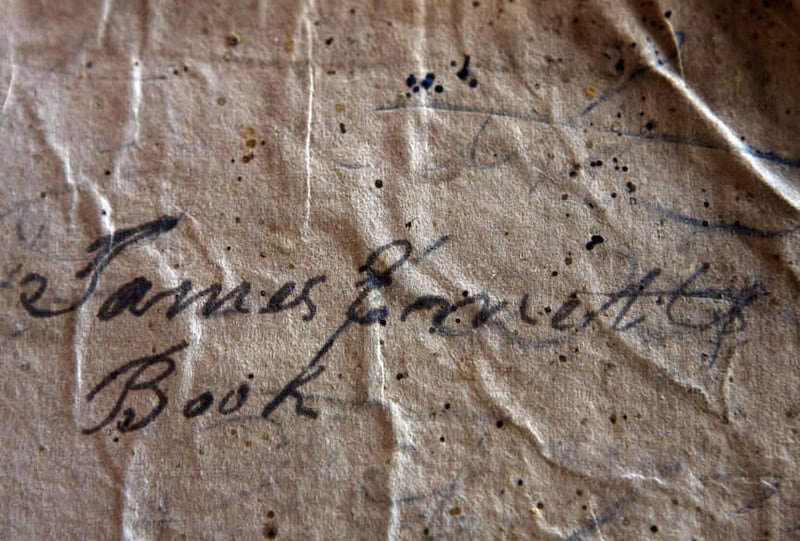 James Emmetts
Book